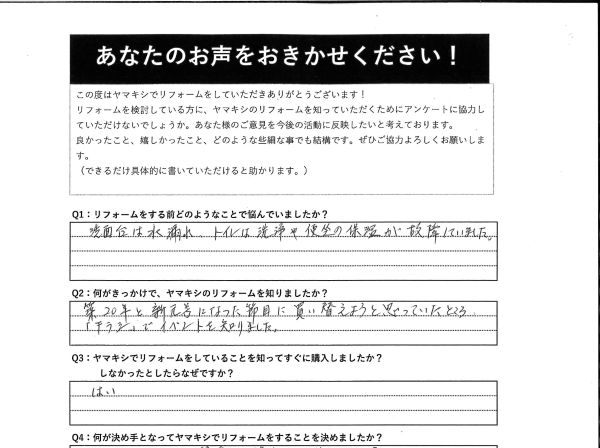 あなたのお声をおきかせください！
この度はヤマキシでリフォームをしていただきありがとうございます！
リフォームを検討している方に、ヤマキシのリフォームを知っていただくためにアンケートに協力し
ていただけないでしょうか。あなた様のご意見を今後の活動に反映したいと考えております。
良かったこと、嬉しかったこと、どのような些細な事でも結構です。ぜひご協力よろしくお願いしま
す。
（できるだけ具体的に書いていただけると助かります。）
Q1：リフォームをする前どのようなことで悩んでいましたか？
洗面台は水漏れ、トイレは洗浄や便座の保温が故障していました。
Q2：何がきっかけで、ヤマキシのリフォームを知りましたか？
築20年と新元号になった節目に買い替えようと思っていたところ、
「チラシ」でイベントを知りました。
Q3：ヤマキシでリフォームをしていることを知ってすぐに購入しましたか？
しなかったとしたらなぜですか？
はい
Q4：何が決め手となってヤマキシでリフォームをすることを決めましたか？